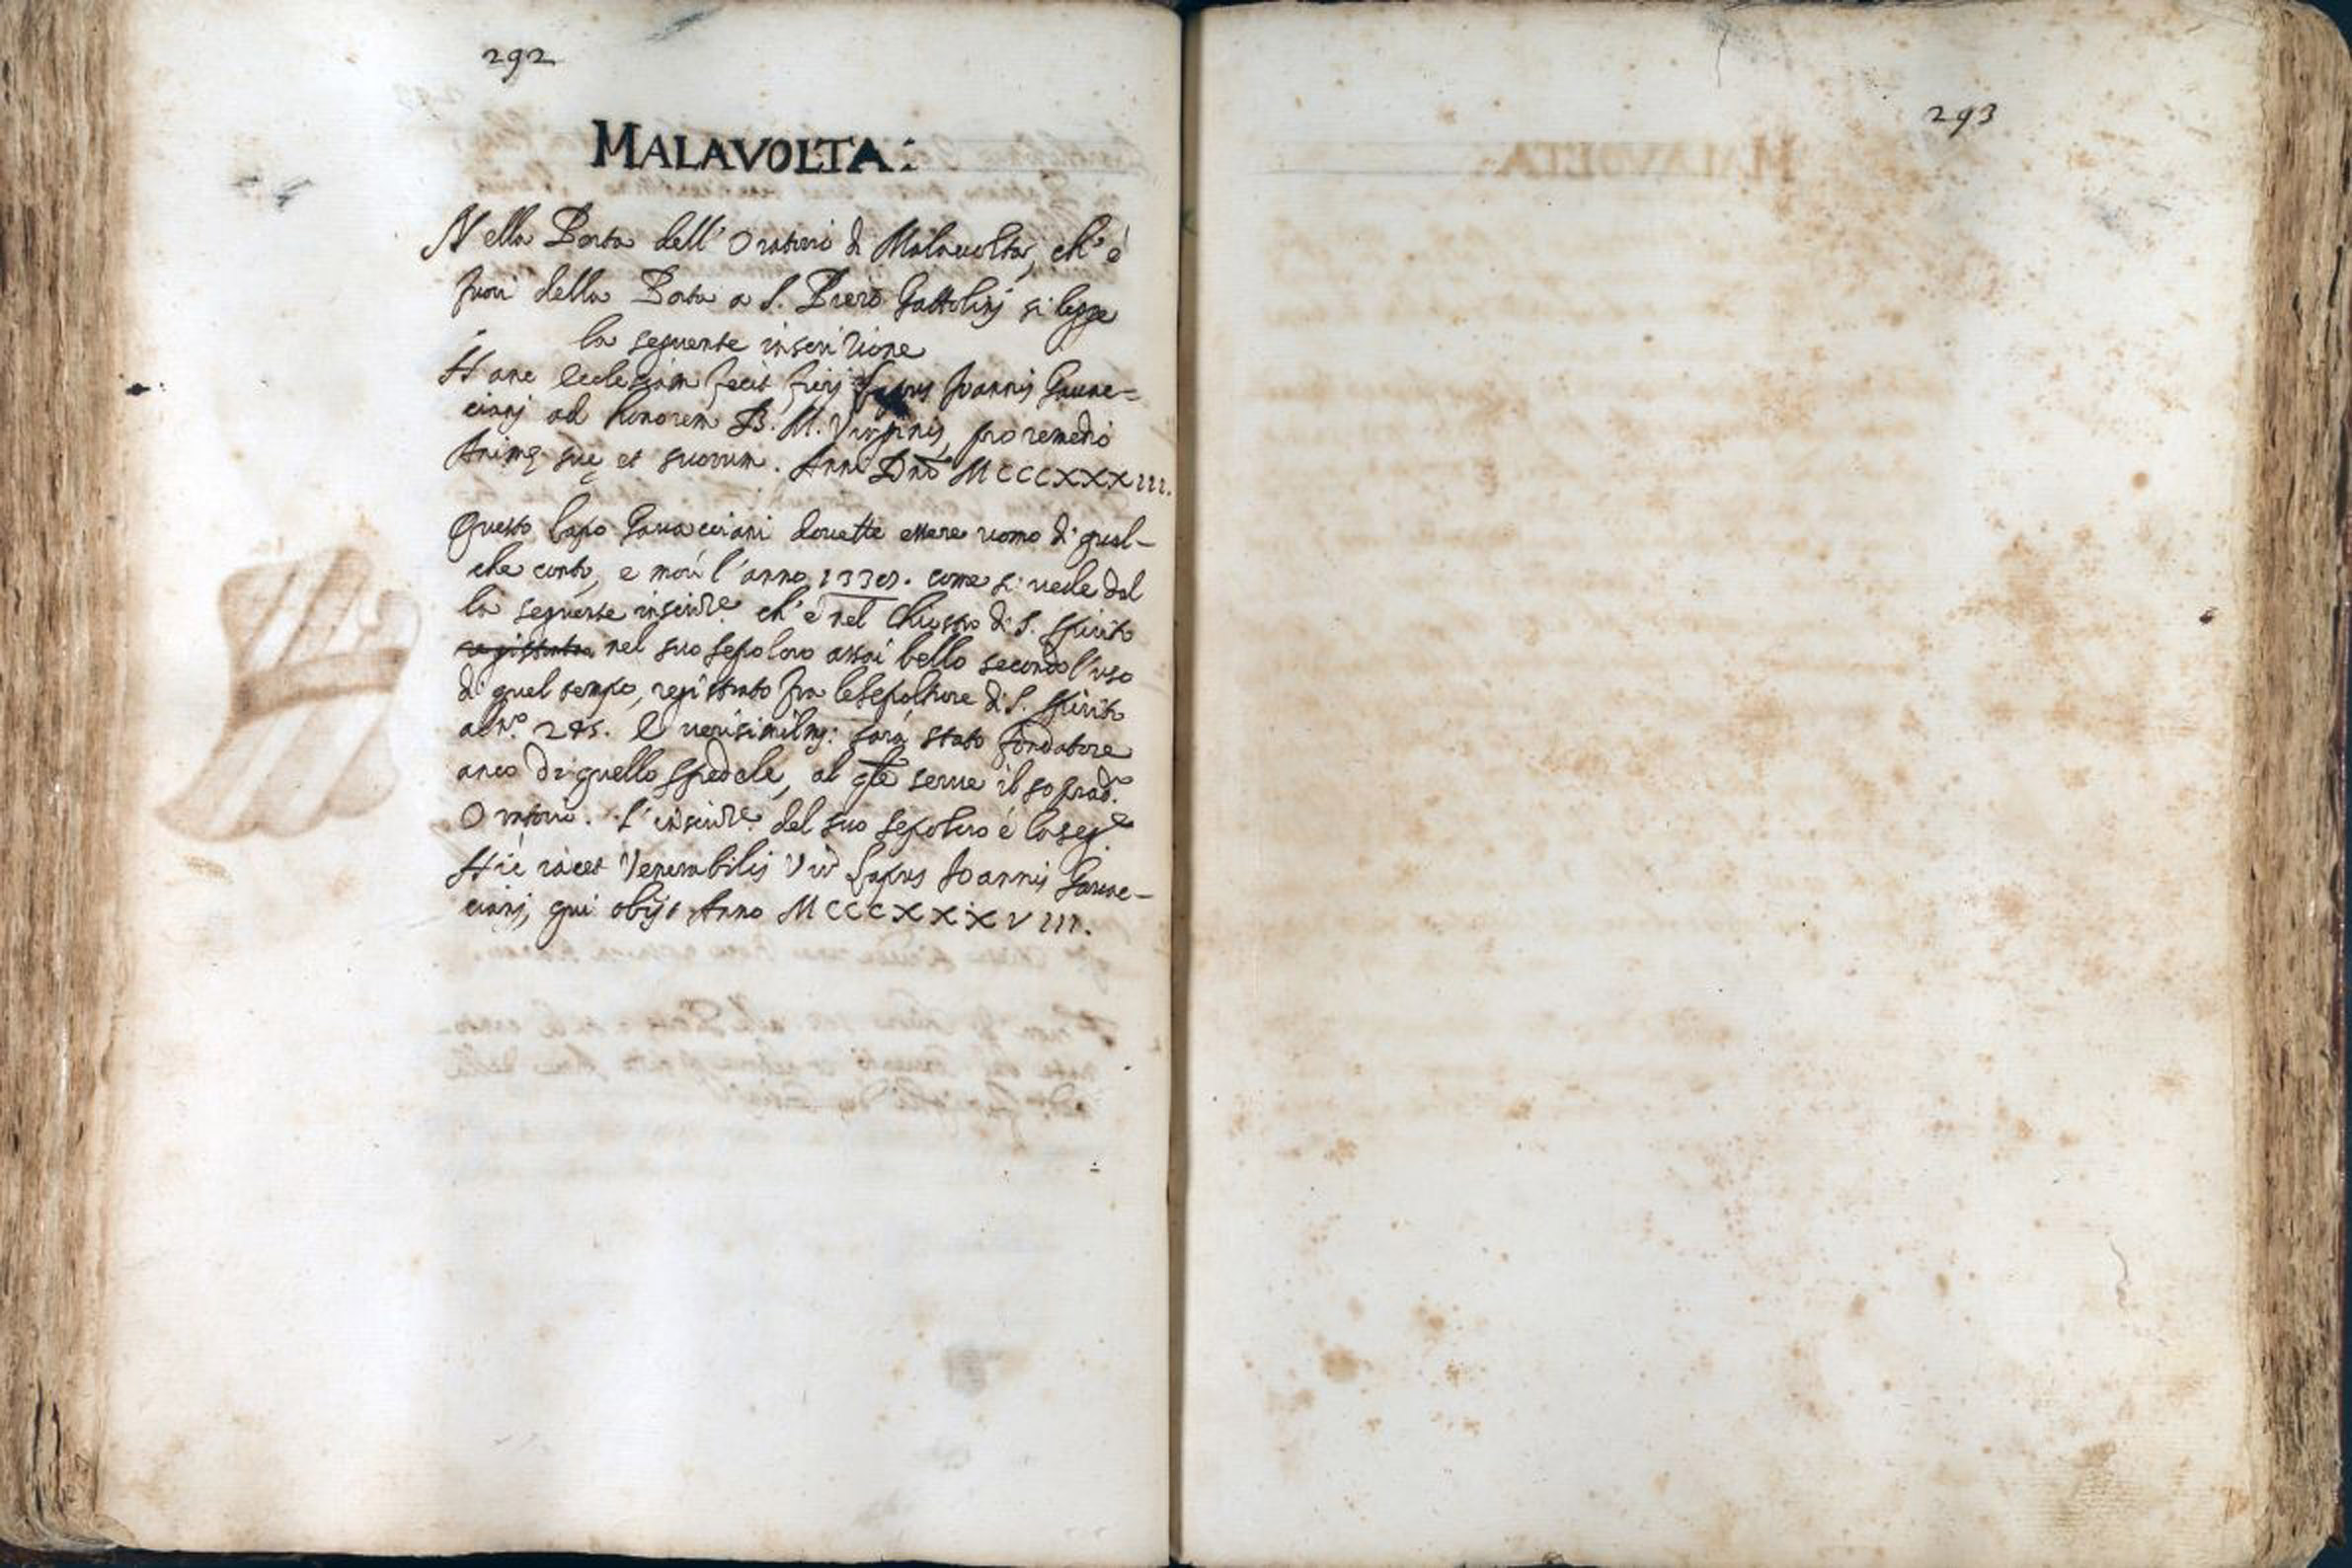 292
MALAVOLTA:
Nella Porta dell' Oratorio di Malavolta, ch' è
fuori della Porta a S. Piero Gattolinj si legge
la seguente inscrizione
Hanc Ecclesiam fecit fierj Lapus Joannis Gauac=
cianj ad honorem B. M. Virginis, pro remedio
Animę suę et suorum. Anni Dnō MCCCXXXIII.
Questo Lapo Gauacciani douette essere uomo di qual-
che conto, e morì l' anno come si uede dal
la seguente inscirze. ch' è nel Chiostro di S. Spirito
registrata nel suo sepolcro assai bello secondo l'uso
di quel tempo, registrato fra le sepolture di S. Spirito
al N.º E uerisimilm: sarà stato fondatore
anco di quello spedale, al qle serue il soprad.º
Oratorio. L' inscirze. del suo sepolcro è la seg.e
Hic iacet Venerabilis Vir Lapus Joannis Gauac-
cianj, qui obijt Anno MCCCXXXVIII.
293